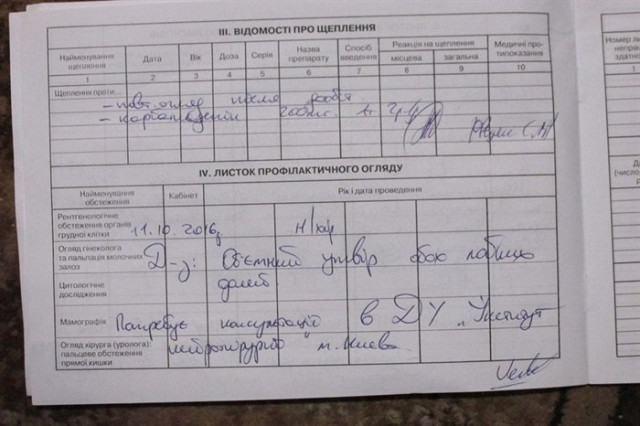 III. ВІДОМОСТІ ПРО ЩЕПЛЕННЯ
Найменування щеплення Дата Вік Доза Серія Назва препарату Спосіб введення Реакція на щеплення Медичні про-типоказання
місцева загальна
1 2 3 4 5 6 7 8 9 10
Щеплення проти...
після
IV. ЛИСТОК ПРОФІЛАКТИЧНОГО ОГЛЯДУ
Найменування обстеження Кабінет Рік і дата проведення
Рентгенологічне
обстеження органів
грудної клітки 11.10.2016 н/хір
Огляд гінеколога
та пальпація молочних
залоз Д-з: Об'ємний утвір обох лобних
Цитологічне
дослідження долей
Мамографія Потребує консультації в ДУ „Інститут
Огляд хірурга (уролога):
пальцеве обстеження
прямої кишки нейрохірургії" м. Києва.
Номер
1